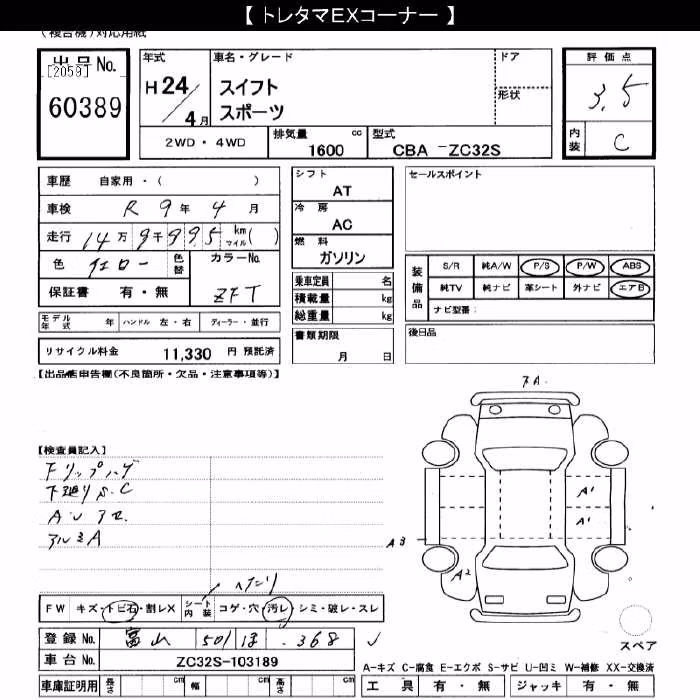 【 トレタマEXコーナー 】
(複合機)対応用紙
出品No.
[2059]
60389
年式
H24/4月
車名・グレード
スイフト
スポーツ
ドア
形状
評価点
3.5
内装
C
2WD・4WD
排気量 cc
1600
型式
CBA -ZC32S
車歴 自家用・( )
車検 R 9年 4月
走行 14万9千995 km マイル( )
色 イエロー 色替
カラーNo.
ZFT
保証書 有・無
シフト
AT
冷房
AC
燃料
ガソリン
乗車定員 名
積載量 kg
総重量 kg
セールスポイント
装備品
S/R 純A/W P/S P/W ABS
純TV 純ナビ 革シート 外ナビ エアB
ナビ型番:
モデル年式 年 ハンドル 左・右 ディーラー・並行
リサイクル料金 11,330 円 預託済
書類期限
月 日
後日品
【出品店申告欄(不良箇所・欠品・注意事項等)】
【検査員記入】
Fリップハゲ
下廻りS.C
AUアセ
アルミA
アA
A1
A1
A3
A2
ヘタリ
FW キズ・トビ石・割レX シート内装 コゲ・穴・汚レ・シミ・破レ・スレ
登録No. 富山 501 ほ .368
車台No. ZC32S-103189
スペア
A-キズ C-腐食 E-エクボ S-サビ U-凹ミ W-補修 XX-交換済
車庫証明用 長さ cm 幅 cm 高さ cm
工具 有・無 ジャッキ 有・無